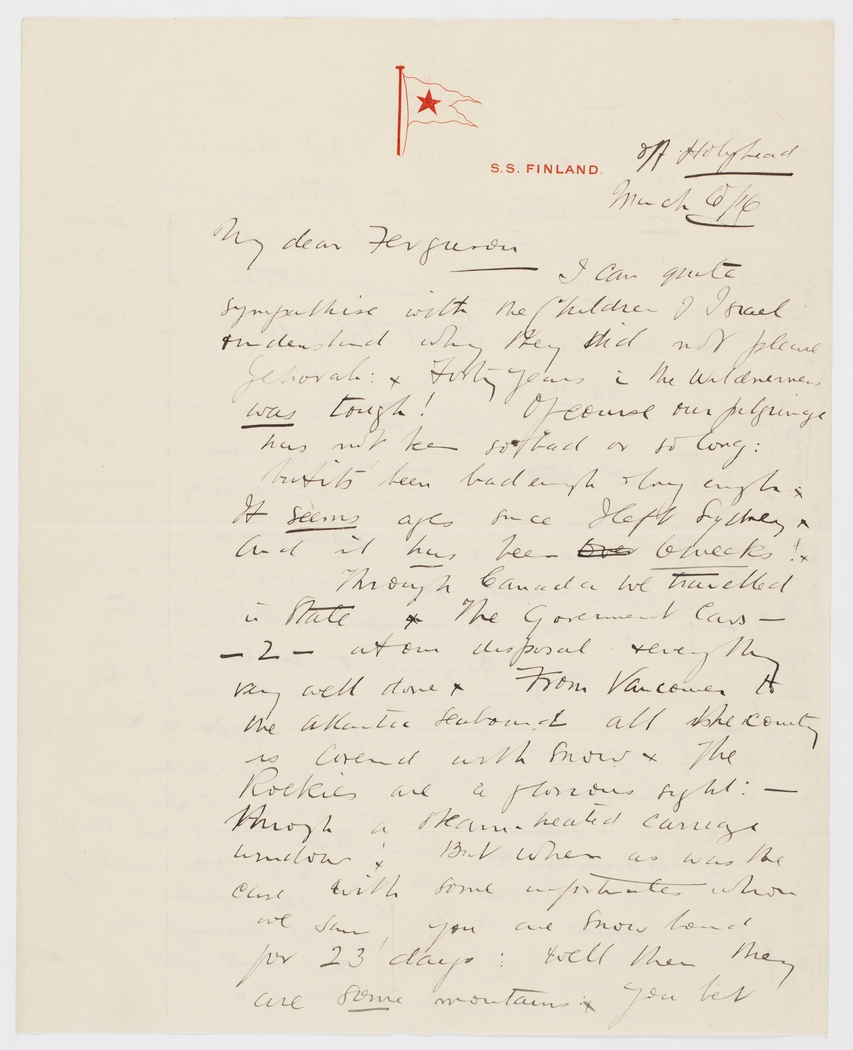 S.S. FINLAND.
off Holyhead
March 6/16
My dear Ferguson
I can quite
sympathise with the Children of Israel
& understand why they did not please
Jehovah: x Forty years in the wilderness
was tough! Of course our pilgrimage
has not been so bad or so long:
but it's been bad enough & long enough x
It seems ages since I left Sydney x
And it has been over 6 weeks! x
Through Canada we travelled
in State x The Government Cars —
— 2 — at our disposal & everything
very well done x From Vancouver to
the Atlantic seaboard all the country
is covered with snow x The
Rockies are a glorious sight: —
through a steam-heated carriage
window: x But when as was the
case with some unfortunates whom
we saw you are snow bound
for 23 days: well then they
are some mountains x You bet